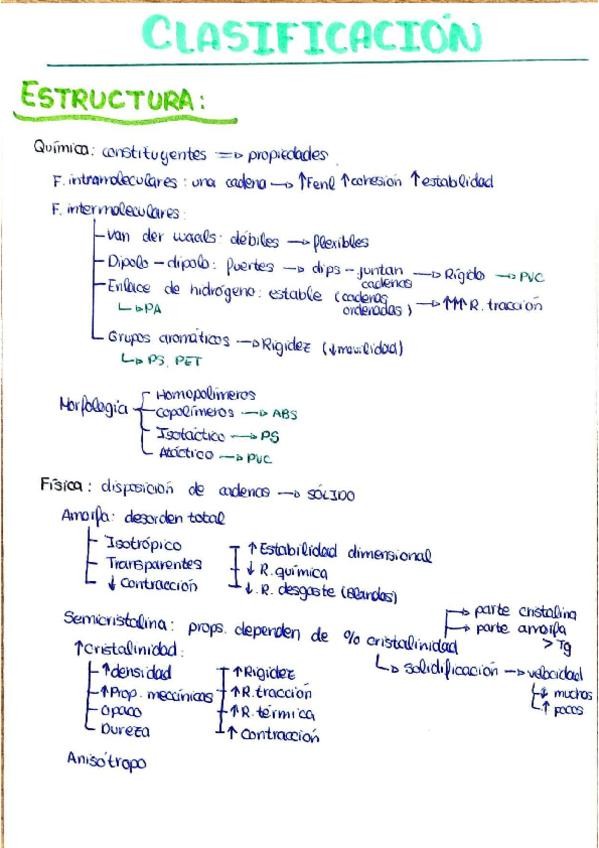 CLASIFICACIÓN
ESTRUCTURA:
Química: constituyentes => propiedades
F. intramoleculares: una cadena → ↑Fenl ↑cohesión ↑establidad
F. intermoleculares:
Van der Waals: débiles → flexibles
Dipolo-dipolo: fuertes → dips-juntan cadenas → Rígido → PVC
Enlace de hidrógeno: estable (cadenas ordenadas) → ↑↑↑ R. tracción
↳ PA
Grupos aromáticos → Rigidez (↓movilidad)
↳ PS, PET
Morfología
Homopolímeros
copolímeros → ABS
Isotáctico → PS
Atáctico → PVC
Física: disposición de cadenas → SÓLIDO
Amorfa: desorden total
Isotrópico ↑Estabilidad dimensional
Transparentes ↓ R. química
↓ Contracción ↓ R. desgaste (Blandos)
Semicristalina: props. dependen de % cristalinidad → parte cristalina
→ parte amorfa > Tg
↑Cristalinidad: ↳ solidificación → velocidad
↓ muchos
↑ pocos
↑densidad ↑Rigidez
↑Prop. mecánicas ↑R. tracción
Opaco ↑R. térmica
Dureza ↑ Contracción
Anisótropo